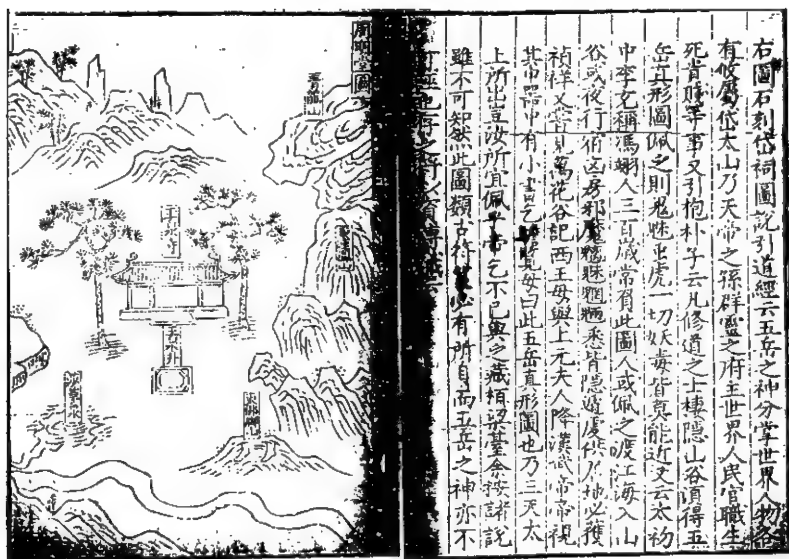 右圖石刻岱祠圖說引道經云五岳之神分掌世界人物各
有攸屬岱太山乃天帝之孫群靈之府主世界人民官職生
死貴賤等事又引抱朴子云凡修道之士棲隱山谷須得五
岳真形圖佩之則鬼魅虫虎一切妖毒皆莫能近又云太初
中李充稱馮翊人三百歲常負此圖人或佩之渡江海入山
谷或夜行宿凶房邪魔魑魅魍魎悉皆隱遁處供乃地必獲
禎祥又嘗見萬花谷記西王母與上元夫人降漢武帝帝視
其巾器中有小書乞瞻覽母曰此五岳真形圖也乃三天太
上所出豈汝所宜佩乎帝乞不已與之藏柏梁臺余按諸說
雖不可知然此圖類古符篆必有所自而五岳之神亦不
也存之
堂圖